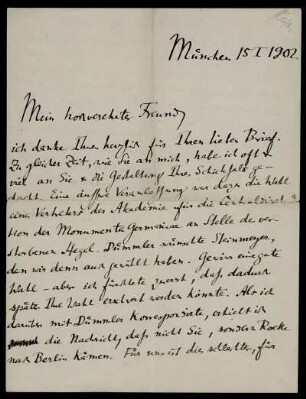 München 15 I 1902.
Mein hochverehrter Freund,
ich danke Ihnen herzlich für Ihren lieben Brief.
Zu gleicher Zeit, wie Sie an mich, habe ich oft u
viel an Sie u die Gestaltung Ihres Schicksals ge-
dacht. Eine äussere Veranlassung war dazu die Wahl
eines Vertreters der Akademie für die Centraldirek-
tion der Monumenta Germaniae an Stelle des ver-
storbenen Hegel. Dümmler wünschte Steinmeyer,
den wir denn auch gewählt haben. Gewiss eine gute
Wahl – aber ich fürchtete zuerst, dass dadurch
später Ihre Wahl erschwert werden könnte. Als ich
darüber mit Dümmler korrespondirte, erhielt ich
die Nachricht, dass nicht Sie, sondern Roethe
nach Berlin kämen. Für uns ist dies schlechter, für